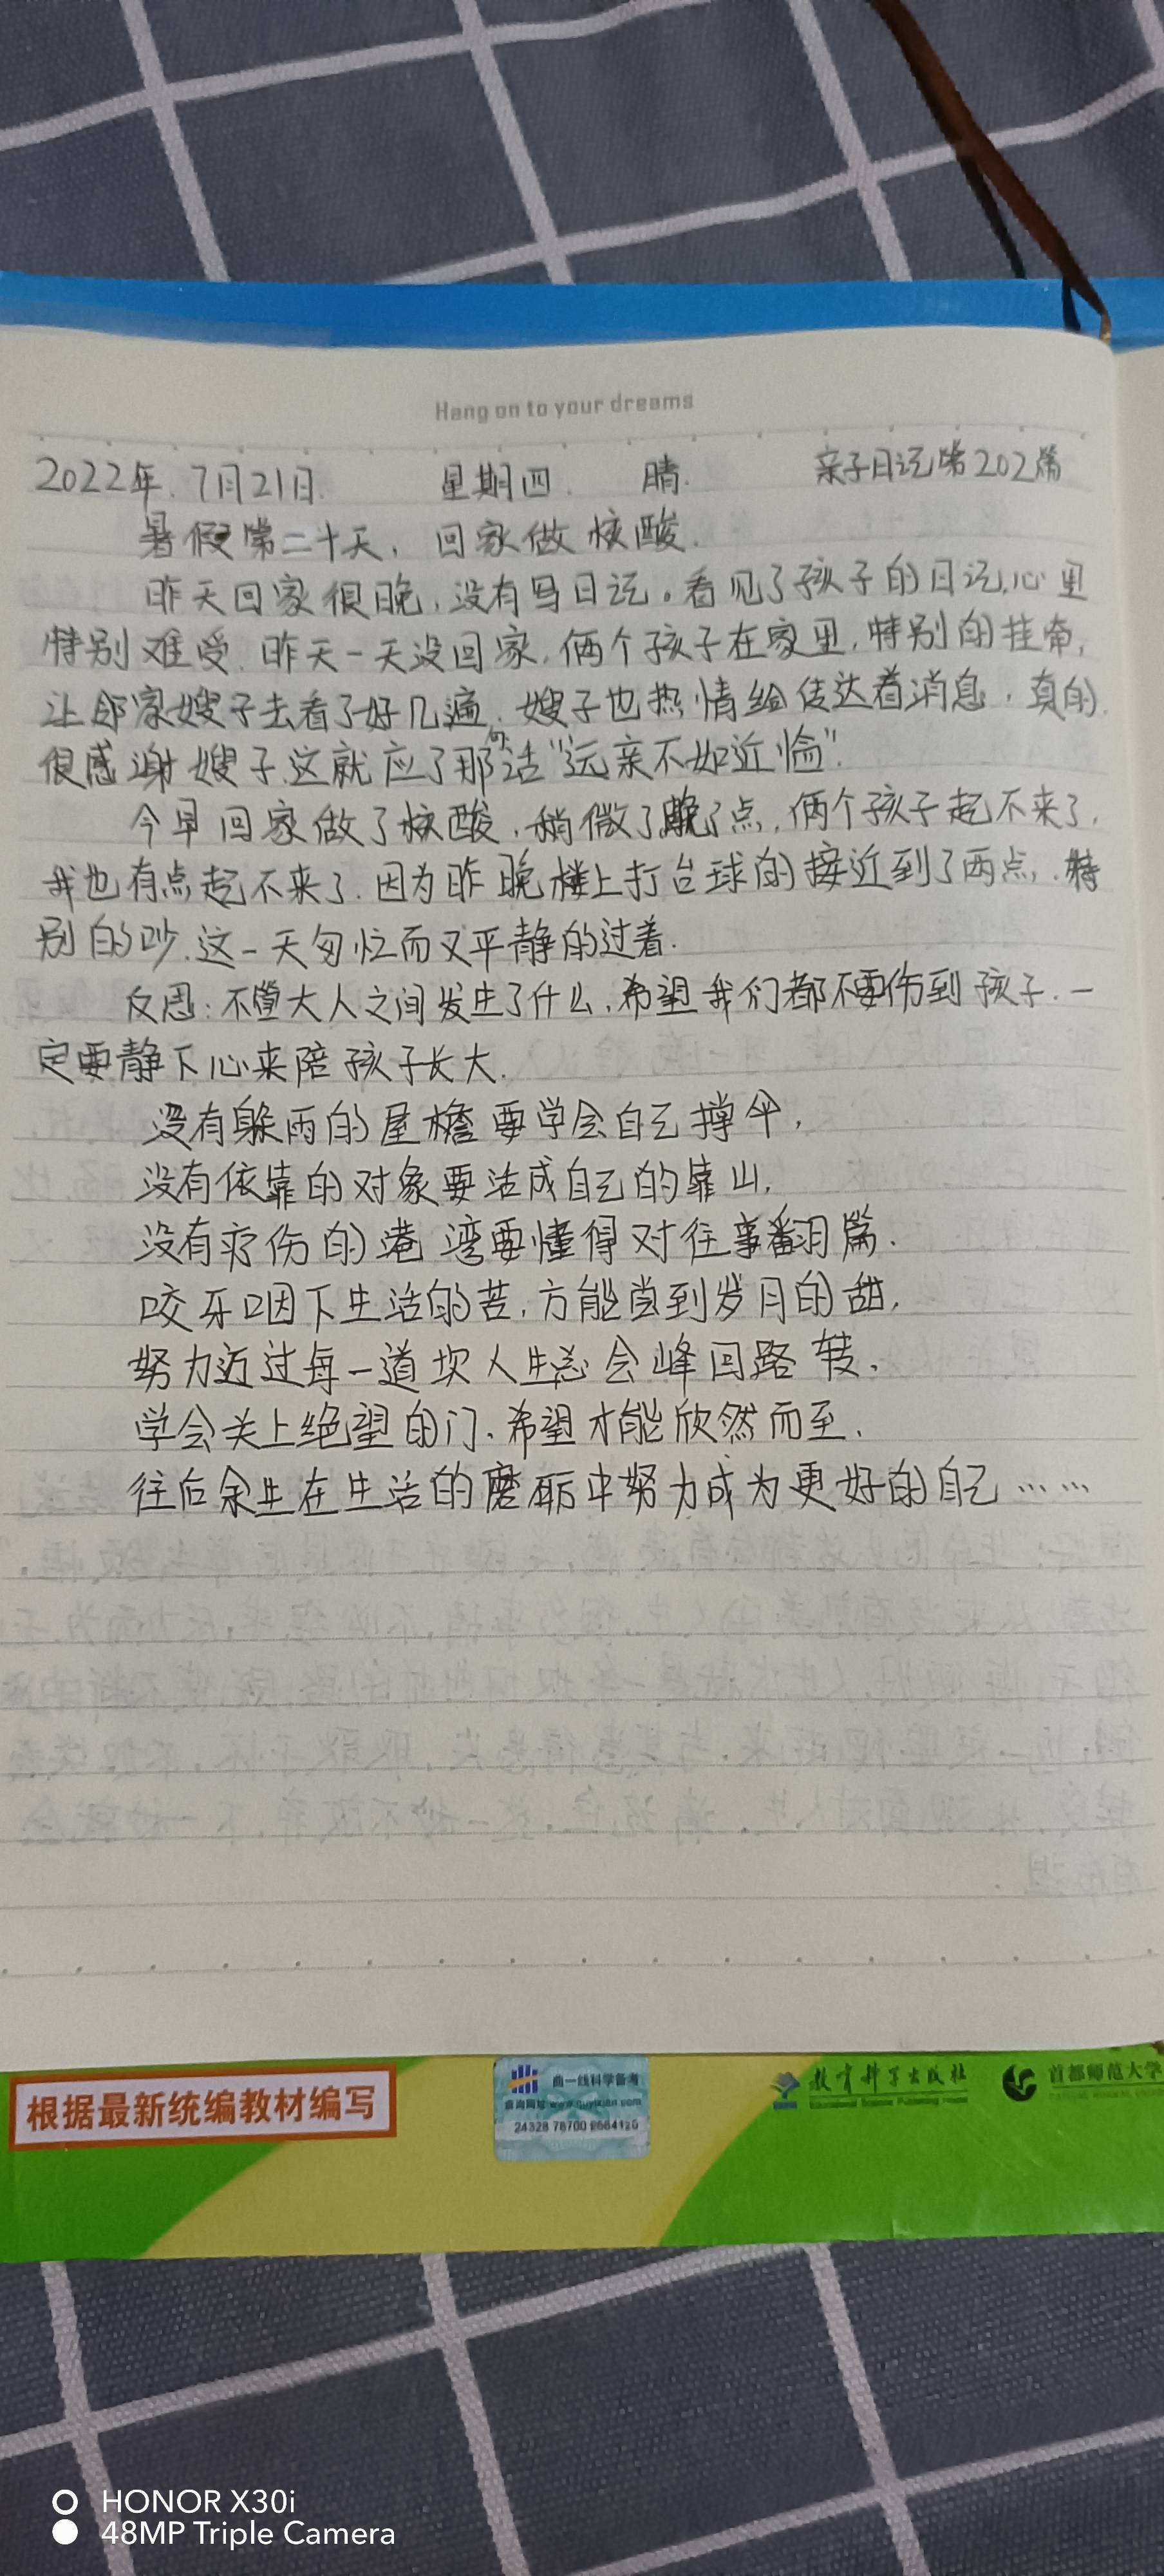 Hang on to your dreams
2022年.7月21日. 星期四. 晴. 亲子日记第202篇
暑假第二十天，回家做核酸.
昨天回家很晚，没有写日记。看见了孩子的日记,心里
特别难受.昨天一天没回家,俩个孩子在家里,特别的挂命,
让邻家嫂子去看了好几遍.嫂子也热情给传达着消息.真的.
很感谢嫂子.这就应了那句话"远亲不如近邻".
今早回家做了核酸,稍微了晚了点,俩个孩子起不来了,
我也有点起不来了.因为昨晚楼上打台球的接近到了两点,.特
别的吵.这一天匆忙而又平静的过着.
反思:不管大人之间发生了什么,希望我们都不要伤到孩子.一
定要静下心来陪孩子长大.
没有躲雨的屋檐要学会自己撑伞,
没有依靠的对象要活成自己的靠山,
没有疗伤的港湾要懂得对往事翻篇.
咬牙咽下生活的苦,方能尝到岁月的甜,
努力迈过每一道坎人生总会峰回路转,
学会关上绝望的门,希望才能欣然而至,
往后余生在生活的磨砺中努力成为更好的自己……
根据最新统编教材编写
曲一线科学备考
查询网址 www.quyixian.com
教育科学出版社
Educational Science Publishing House
首都师范大学
HONOR X30i
48MP Triple Camera